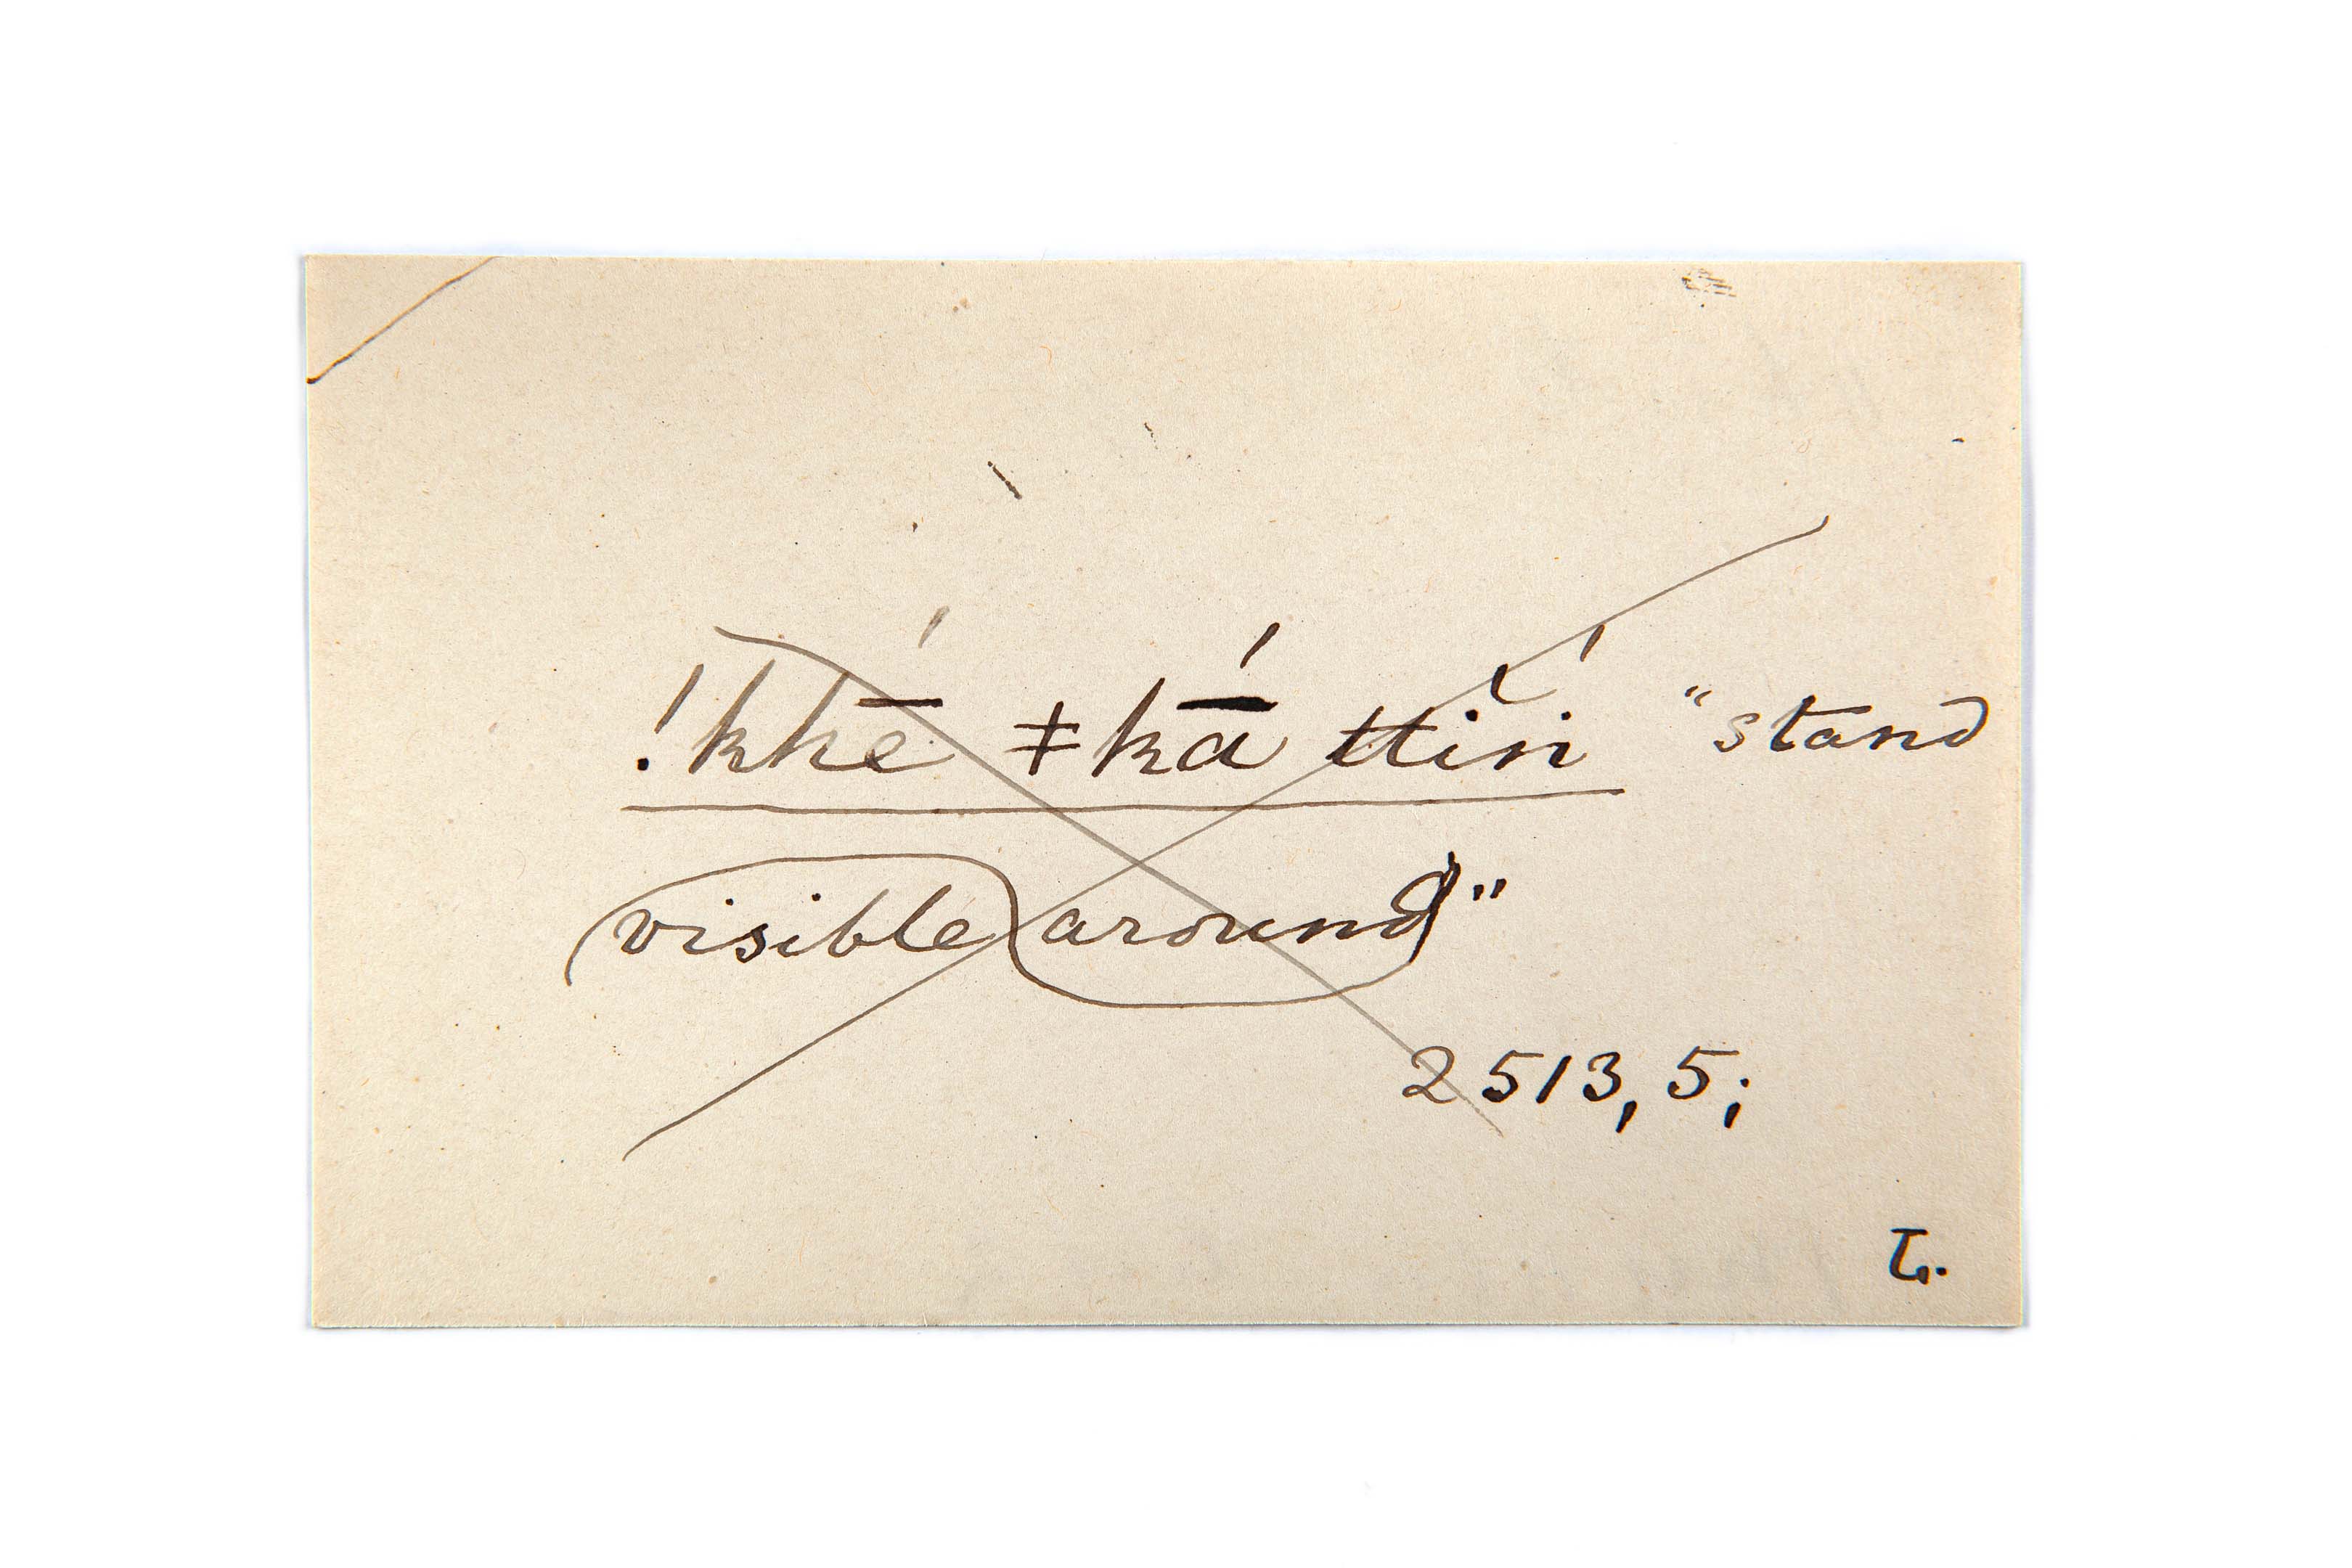 !kkḗ ǂkā́ ttĭń "stand
visible around"
2513, 5;
L.